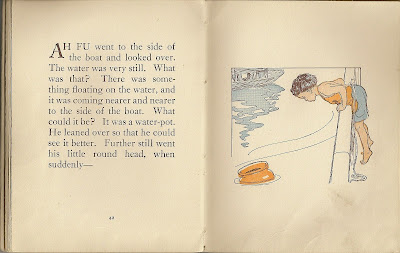 AH FU went to the side of
the boat and looked over.
The water was very still. What
was that? There was some-
thing floating on the water, and
it was coming nearer and nearer
to the side of the boat. What
could it be? It was a water-pot.
He leaned over so that he could
see it better. Further still went
his little round head, when
suddenly—